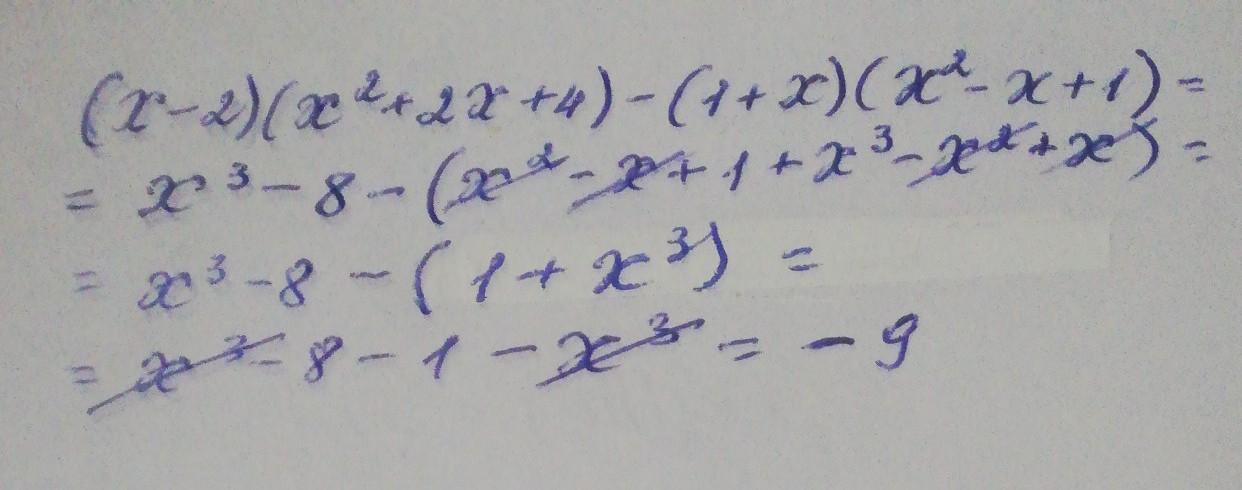 (x-2)(x²+2x+4)-(1+x)(x²-x+1)=
= x³-8-(x²-x+1+x³-x²+x)=
= x³-8-(1+x³) =
= x³-8-1-x³=-9